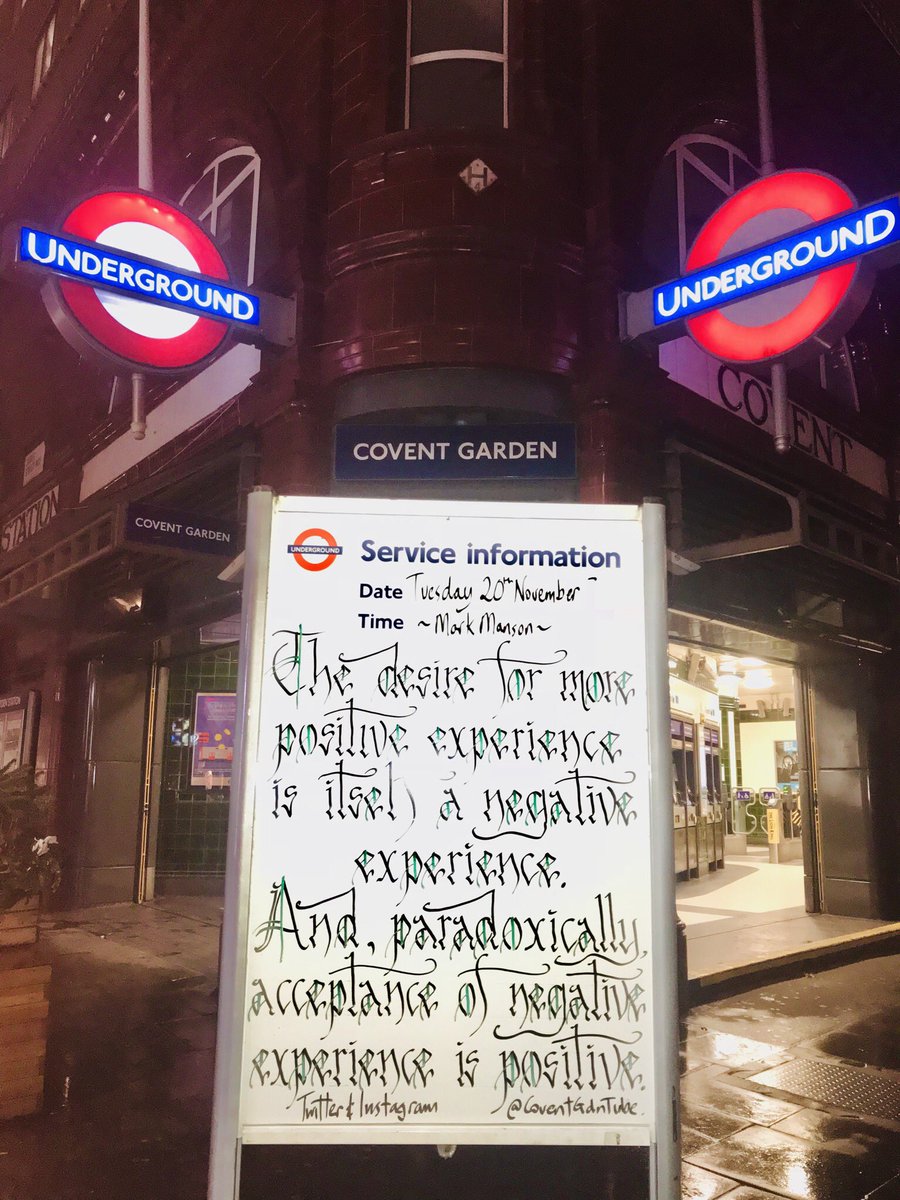 UNDERGROUND
UNDERGROUND
H
COVENT GARDEN
COVENT
STATION
COVENT GARDEN
UNDERGROUND
Service information
Date Tuesday 20th November
Time ~Mark Manson~
The desire for more
positive experience
is itself a negative
experience.
And, paradoxically,
acceptance of negative
experience is positive.
Twitter & Instagram @CoventGdnTube.